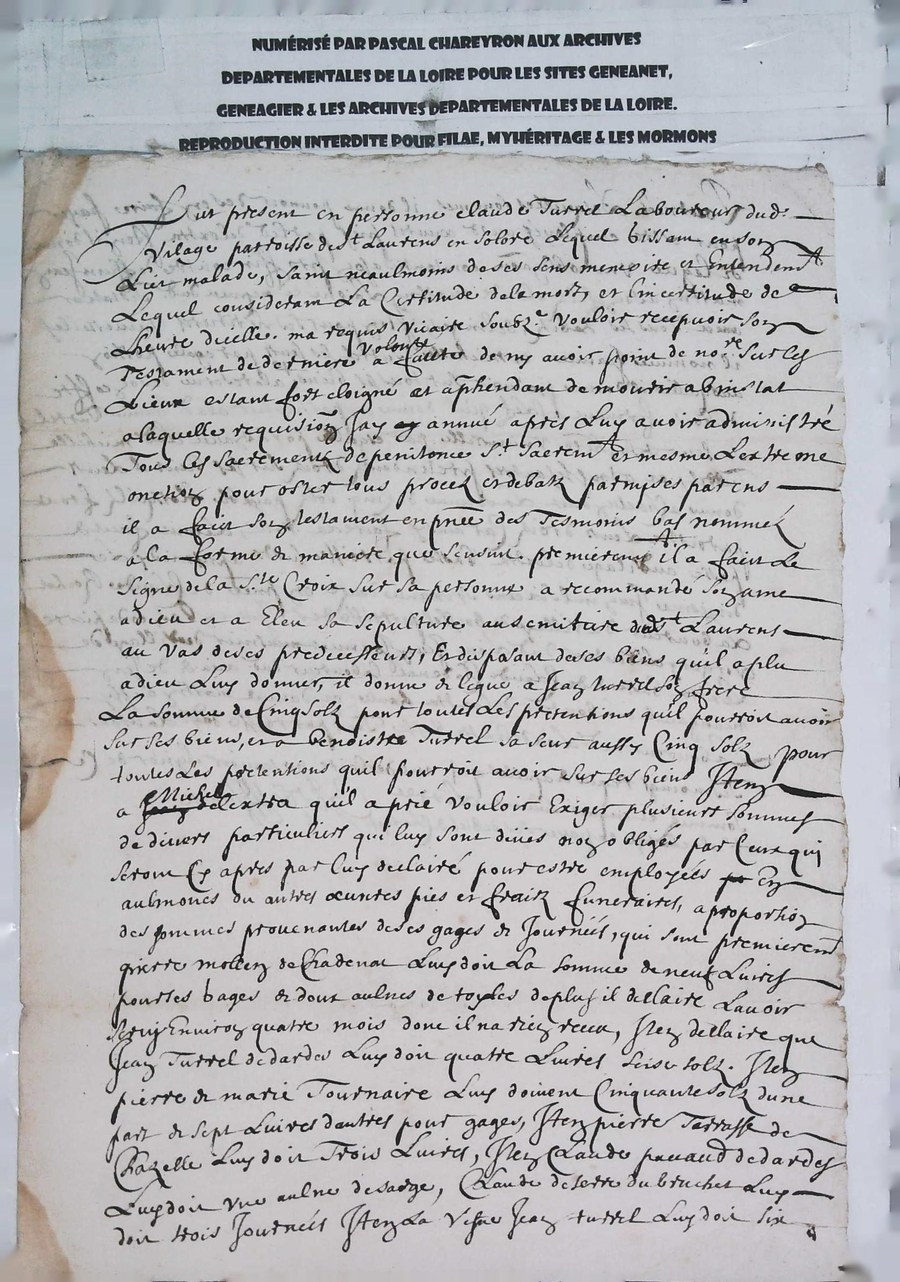 NUMÉRISÉ PAR PASCAL CHAREYRON AUX ARCHIVES
DEPARTEMENTALES DE LA LOIRE POUR LES SITES GENEANET,
GENEAGIER & LES ARCHIVES DEPARTEMENTALES DE LA LOIRE.
REPRODUCTION INTERDITE POUR FILAE, MYHÉRITAGE & LES MORMONS
Fut present en personne claude Turrel Laboureur dud.
Vilage parroisse de st Laurens en solore Lequel gissant en son
Lict malade, sain neaulmoins de ses sens memoire et Entendemt
Lequel considerant La Certitude de la mort, et lincertitude de
Lheure dicelle. ma requis Vicaire soubz.e Vouloir recepvoir son
Testament de derniere volonte a faulte de ny avoir point de no.re sur les
Lieux estant fort eloigné et aphendant de mourir abinstat
a laquelle requision Jay annué apres Luy avoir administré
Tous les sacrements de penitence St Sacremt et mesme Lextreme
onction pour oster tous proces et debatz parmy ses parens
il a faict son testament en pnce des Tesmoins bas nommés
a la forme & maniere que sensuit. premierement il a faict Le
signe de la Ste Croix sur sa personne a recommandé son ame
a dieu et a Eleu sa sepulture au semitaire dud st Laurens
au Vas de ses predecesseurs, Et disposant de ses biens qu'il a plu
a dieu Luy donner, il donne & legue a Jean turrel son frere
La somme de Cinq solz pour toutes Les pretentions qu'il pourroit avoir
sur ses biens, et a Benoiste Turrel sa seur aussy Cinq solz pour
toutes Les pretentions quil pourroit avoir sur ses biens Item
a Michel delextra qu'il a prié vouloir Exiger plusieurs sommes
de divers particuliers qui luy sont deües non obligés par Ceux qui
seront Cy apres par luy declairé pour estre employées En
aulmones ou autres œuvres pies et fraix funeraires, a proportion
des sommes provenantes de ses gages & Journées, qui sont premieremt
pierre mollen de Chadenat Luy doit La somme de neuf Livres
pour ses gages & deux aulnes de toyles de plus il dellaire Lavoir
servy Environ quatre mois dont il na rien receu, Iten dellaire que
Jean Turrel de dardes Luy doit quatre Livres seise solz. Iten
pierre & marie Tournaire Luy doivent Cinquante solz dune
part & sept Livres dautres pour gages, Iten pierre Terrasse de
Chazelle Luy doit Trois Livres, Iten Claude pavaud de dardes
Luy doit vne aulne de sarge, Claude deserre du bruchet Luy
doit trois Journées Iten La Vefve Jean turrel Luy doit six